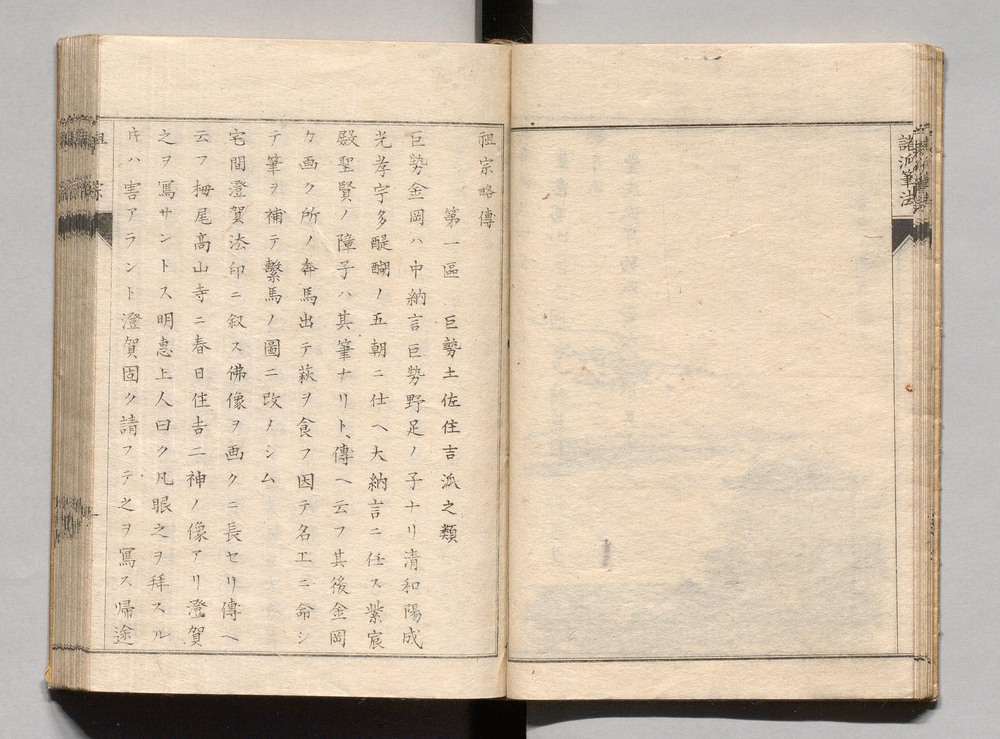 諸派筆法
祖宗略傳
第一區 巨勢土佐住吉派之類
巨勢金岡ハ中納言巨勢野足ノ子ナリ清和陽成
光孝宇多醍醐ノ五朝ニ仕ヘ大納言ニ任ス紫宸
殿聖賢ノ障子ハ其筆ナリト、傳ヘ云フ其後金岡
カ画ク所ノ奔馬出テ萩ヲ食フ因テ名工ニ命シ
テ筆ヲ補テ繫馬ノ圖ニ改メシム
宅間澄賀法印ニ叙ス佛像ヲ画クニ長セリ傳ヘ
云フ栂尾高山寺ニ春日住吉二神ノ像アリ澄賀
之ヲ寫サントス明惠上人曰ク凡眼之ヲ拜スル
片ハ害アラント澄賀固ク請フテ之ヲ寫ス帰途
祖宗
一